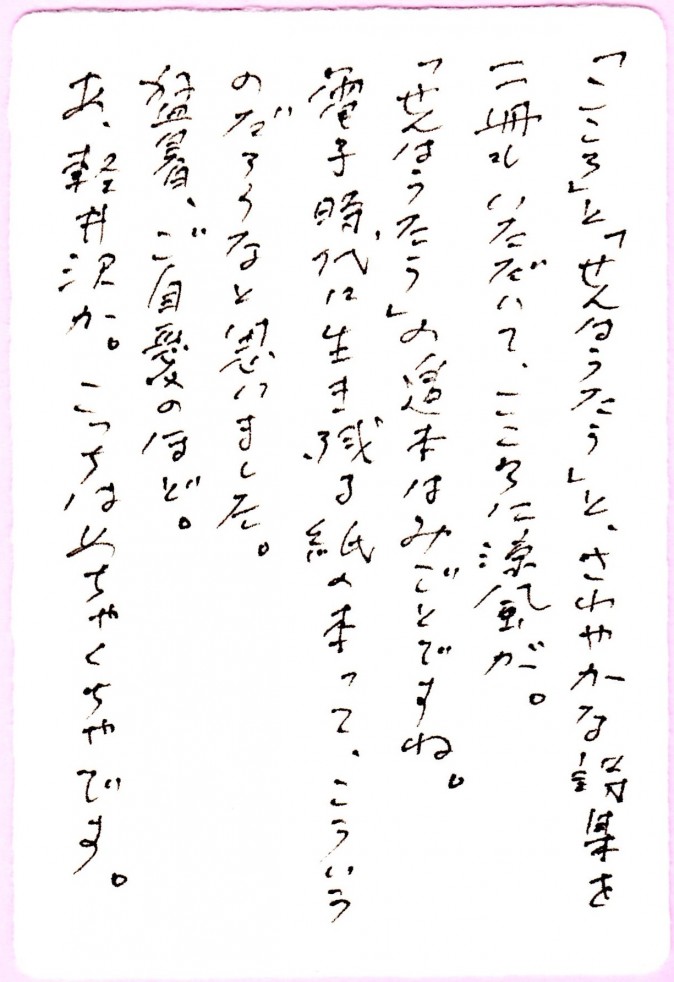 「こころ」と「せんはうたう」と、さわやかな詩集を
二冊もいただいて、こころに涼風が。
「せんはうたう」の造本はみごとですね。
電子時代に生き残る紙の本って、こういう
のだろうなと思いました。
猛暑、ご自愛のほど。
あ、軽井沢か。こっちはめちゃくちゃです。